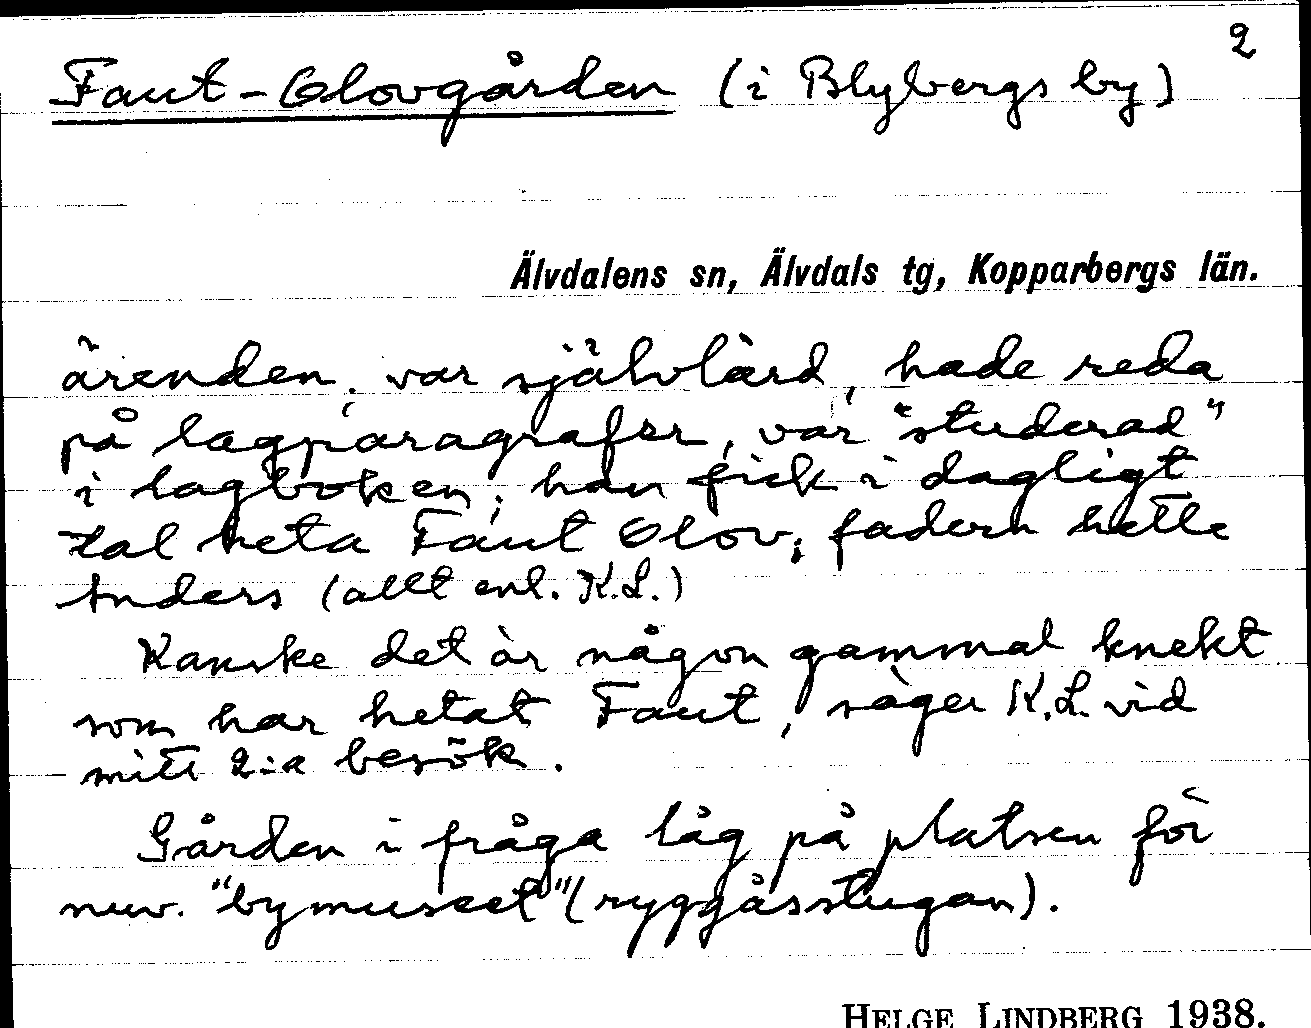 2
Faut-Olovgården (i Blybergs by)
Älvdalens sn, Älvdals tg, Kopparbergs län.
ärenden, var självlärd, hade reda
på lagparagrafer, var "studerad"
i lagboken; han fick i dagligt
tal heta Faut Olov; fadern hette
Anders (allt enl. K.L.)
Kanske det är någon gammal knekt
som har hetat Faut, säger K.L. vid
mitt 2:a besök.
Gården i fråga låg på platsen för
nuv. "bymuseet" (ryggåsstugan).
HELGE LINDBERG 1938.